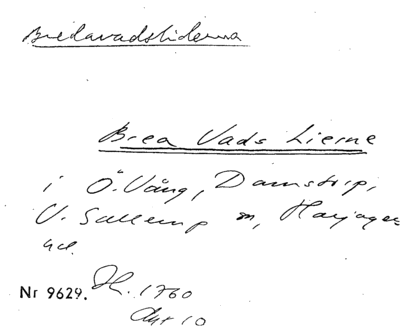 Bredavadsliderna
Brea Vads Lierne
i Ö. Vång, Damstorp,
V. Sallerup sn, Harjagers
hd.
Nr 9629. Hl. 1760
Akt 10